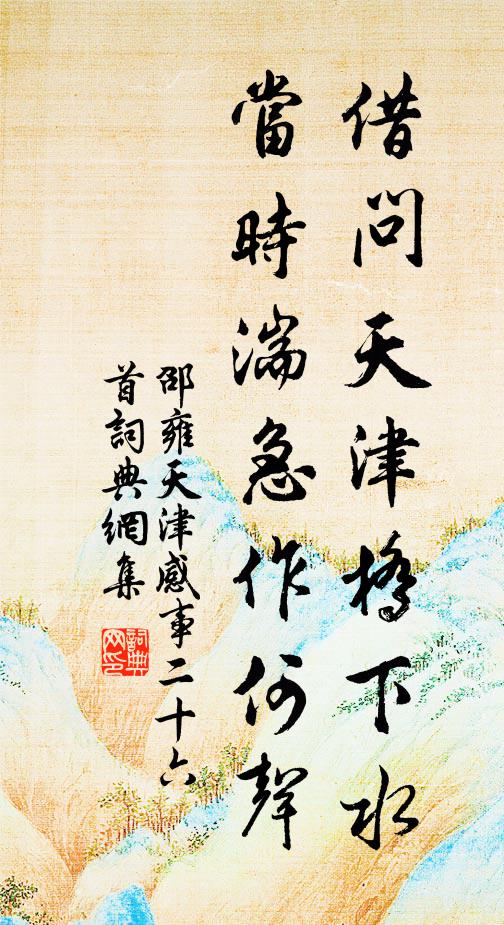 借問天津橋下水
當時湍急作何聲
邵雍天津感事二十六
首詞典網集
詞典網印